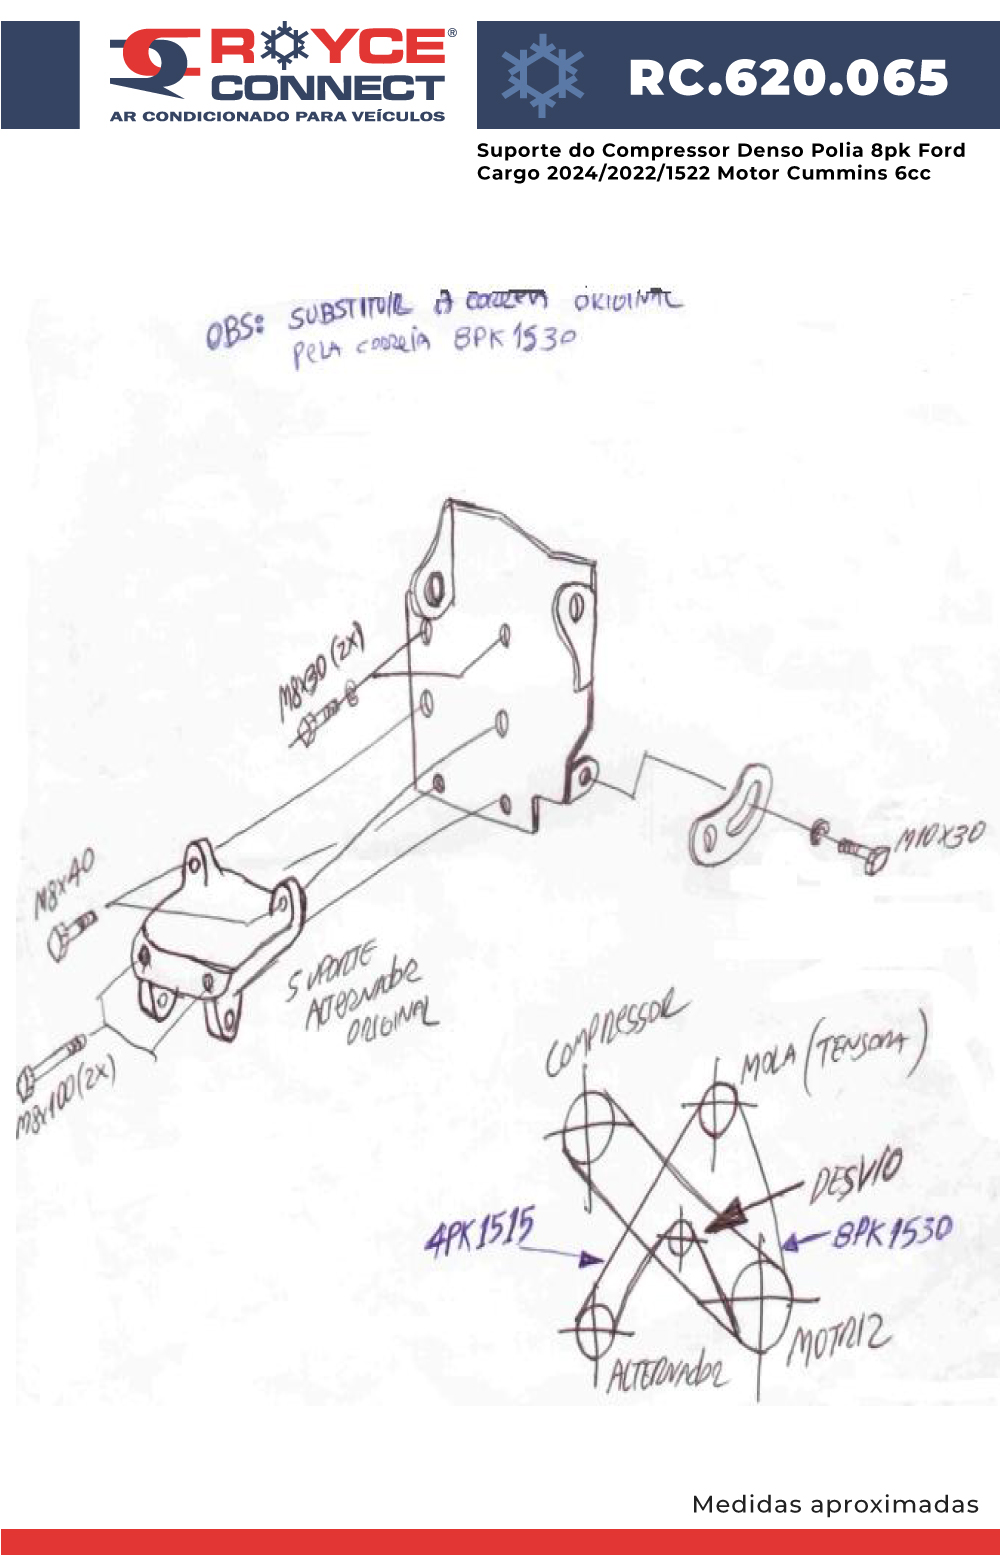 ROYCE®
CONNECT
AR CONDICIONADO PARA VEÍCULOS
RC.620.065
Suporte do Compressor Denso Polia 8pk Ford
Cargo 2024/2022/1522 Motor Cummins 6cc
OBS: SUBSTITUIR A CORREIA ORIGINAL
PELA CORREIA 8PK1530
M8x30 (2x)
M10x30
M8x40
SUPORTE
ALTERNADOR
ORIGINAL
M8x100 (2x)
COMPRESSOR
MOLA (TENSORA)
DESVIO
4PK1515
8PK1530
MOTRIZ
ALTERNADOR
Medidas aproximadas